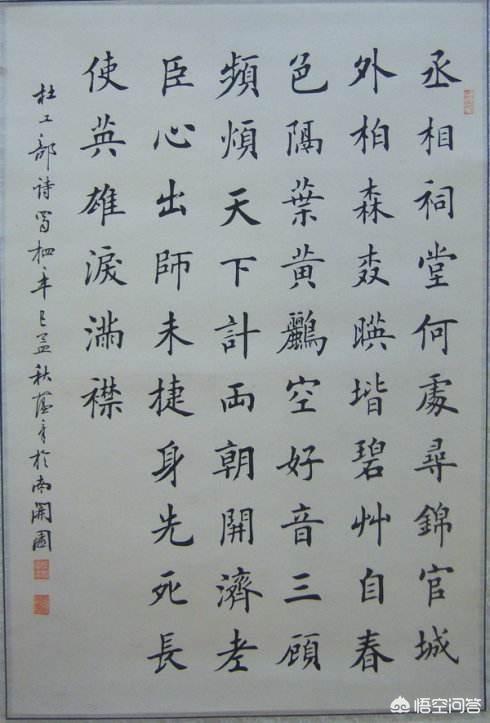 丞相祠堂何處尋錦官城
外柏森森暎堦碧艸自春
色隔葉黃鸝空好音三顧
頻煩天下計両朝開濟老
臣心出師未捷身先死長
使英雄淚滿襟
杜工部詩蜀相秋於南開園
悟空问答